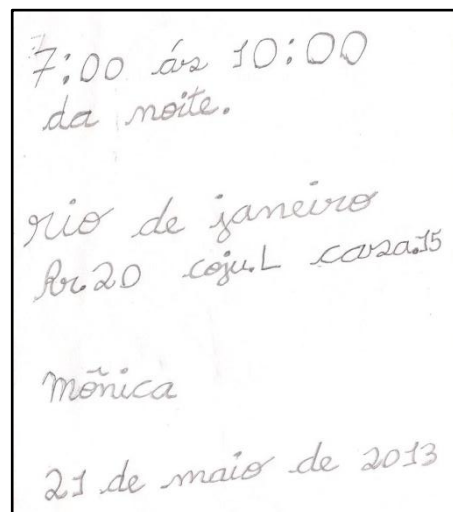 7:00 ás 10:00
da noite.
rio de janeiro
Rr.20 coju.L casa.15
Mõnica
21 de maio de 2013